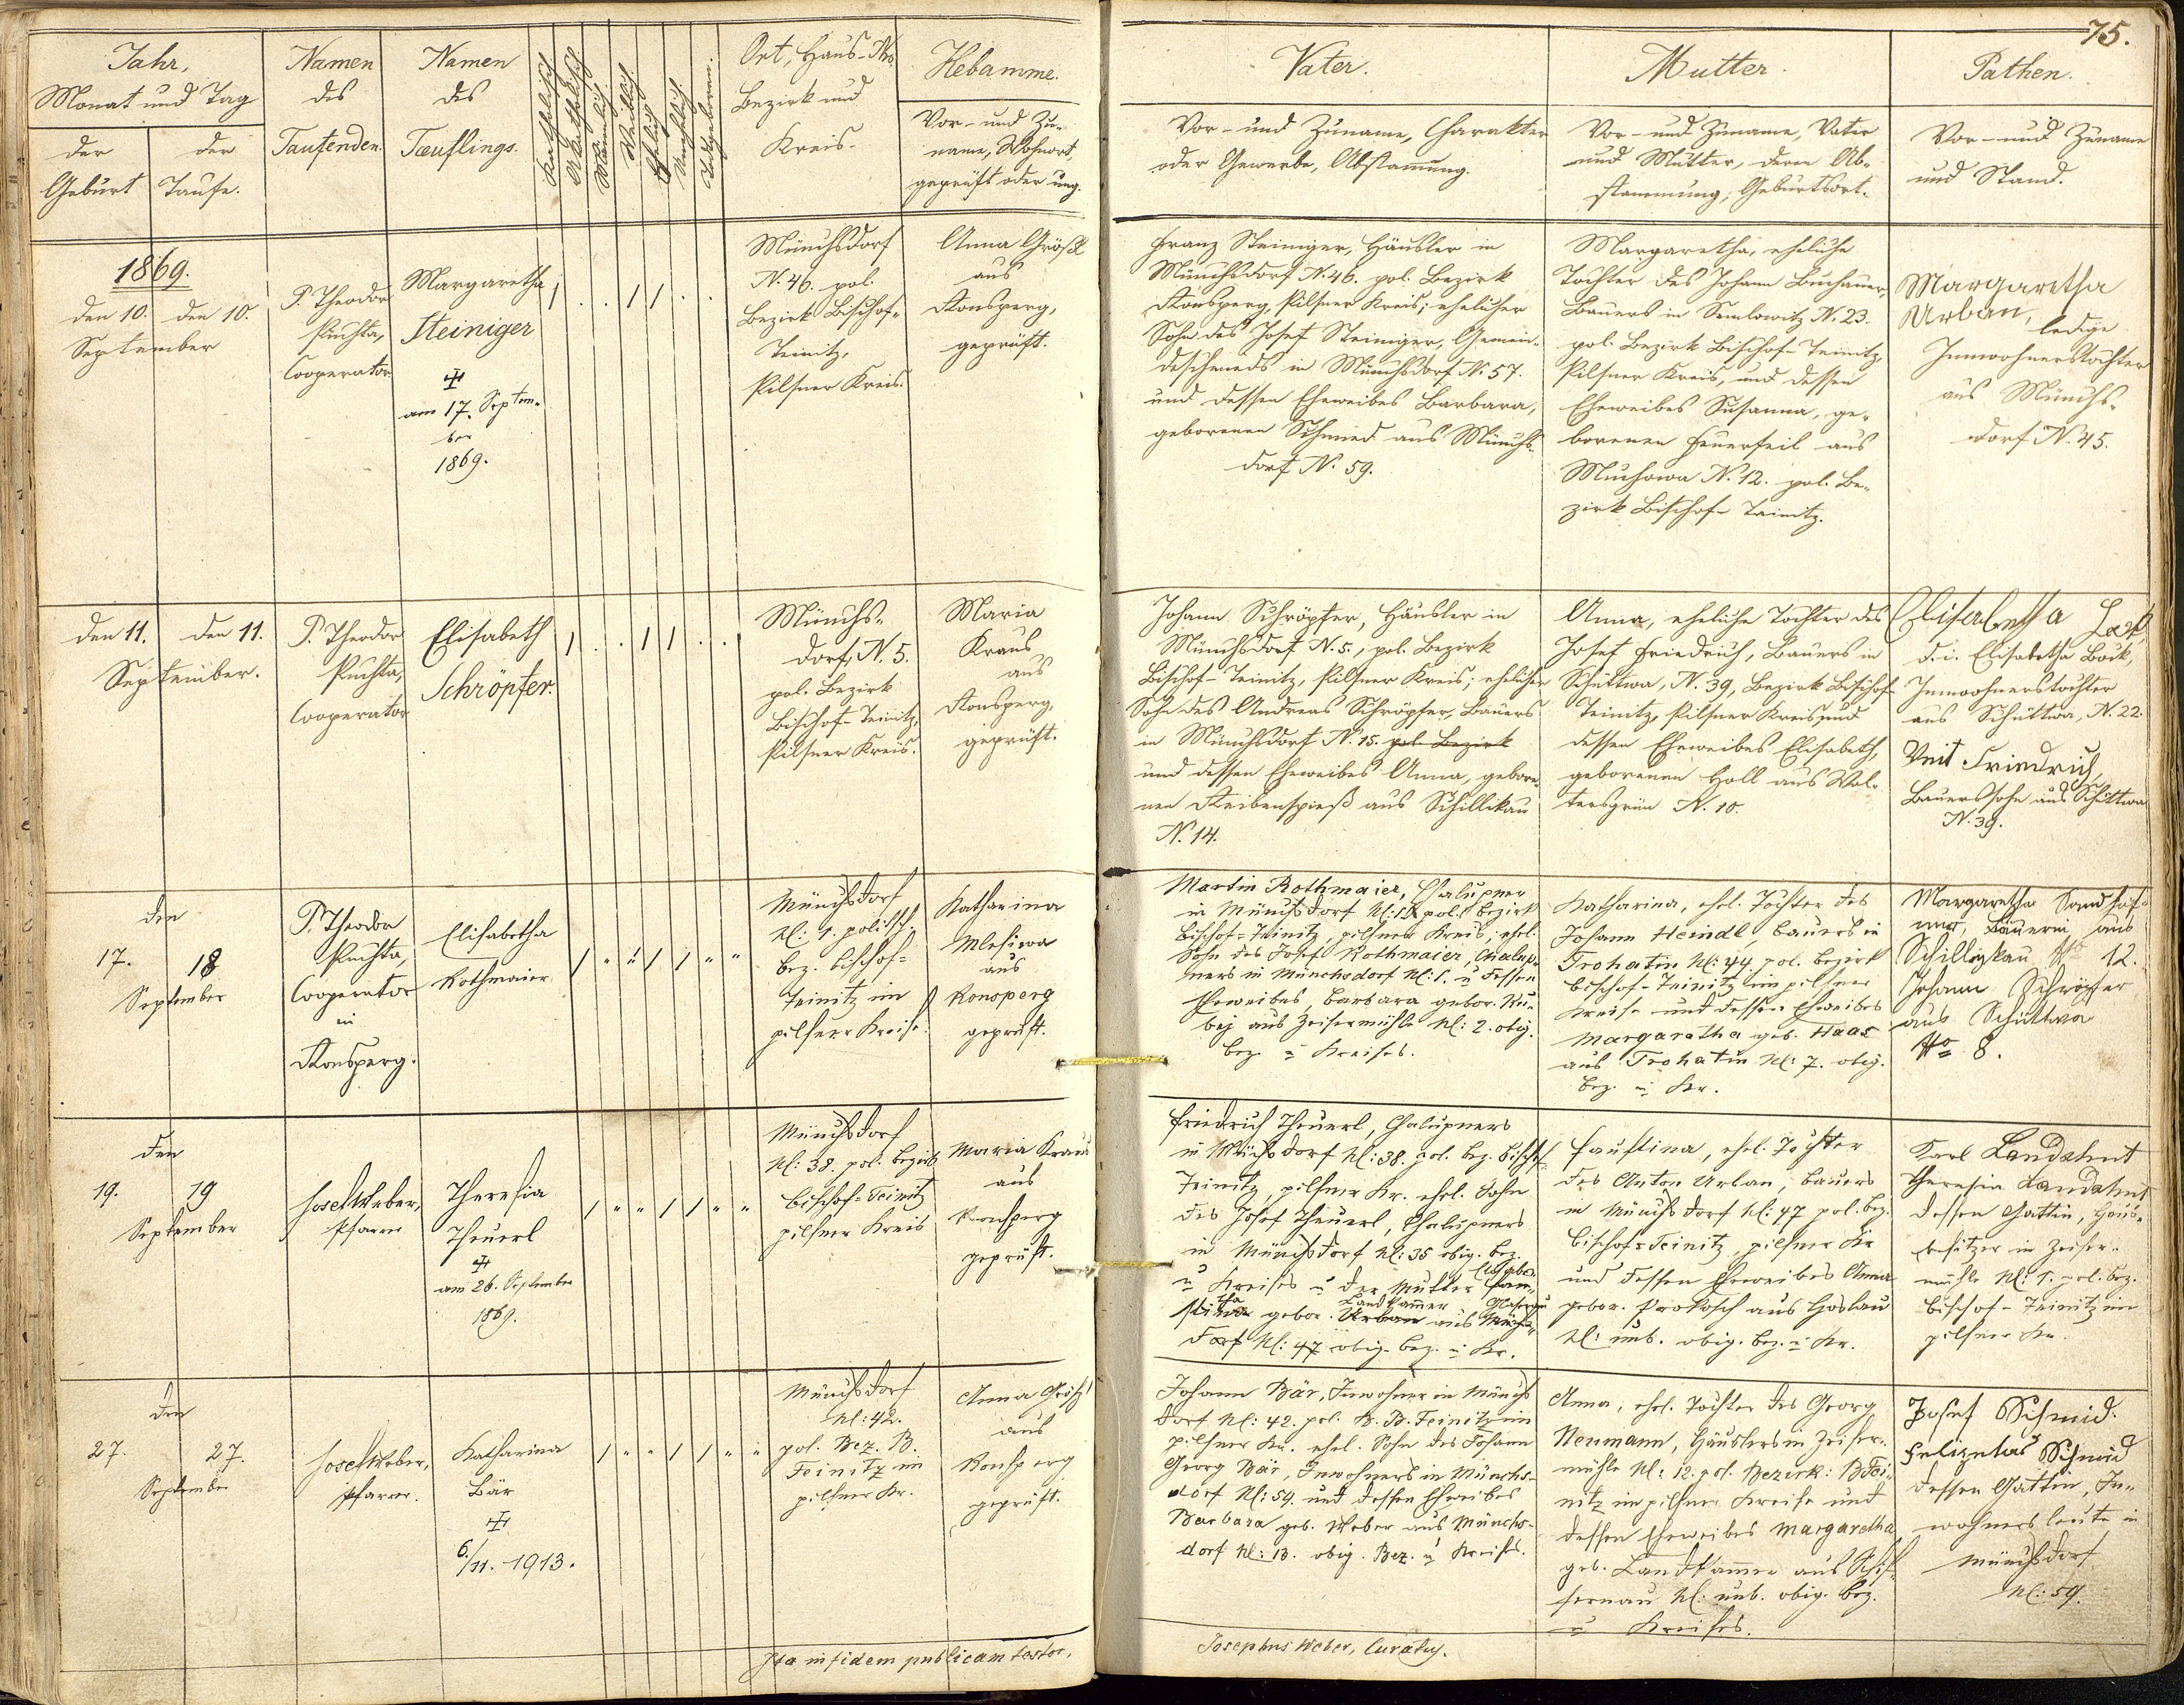 75.
Jahr,
Monat und Tag
der
Geburt
der
Taufe.
Namen
des
Taufenden.
Namen
des
Tæuflings.
Katholisch
Akatholisch
Männlich
Weiblich
Ehelich
Unehlich
Todtgeboren.
Ort, Haus-Nro.
Bezirk und
Kreis.
Hebamme.
Vor- und Zu-
name, Wohnort,
geprüft oder ung.
Vater.
Vor- und Zuname, Charakter
oder Gewerbe, Abstammung.
Mutter.
Vor- und Zuname, Vater
und Mutter, deren Ab-
stammung, Geburtsort.
Pathen.
Vor- und Zuname
und Stand.
1869.
den 10. den 10.
September
P. Theodor
Puchta,
Cooperator
Margaretha
Steiniger
am 17. Septem-
ber
1869.
Münchsdorf
N. 46. pol.
Bezirk Bischof-
Teinitz,
Pilsner Kreis.
Anna Größl
aus
Ronsperg,
geprüft.
Franz Steiniger, Häusler in
Münchsdorf N. 46. pol. Bezirk
Ronsperg, Pilsner Kreis; ehelicher
Sohn des Josef Steiniger, Gemein-
deschmieds in Münchsdorf N. 57.
und dessen Eheweibes Barbara,
geborenen Schmied aus Münchs-
dorf N. 59.
Margaretha, eheliche
Tochter des Johann Buchauer,
Bauers in Semlowitz N. 23.
pol. Bezirk Bischof-Teinitz,
Pilsner Kreis, und dessen
Eheweibes Susanna, ge-
borenen Feuerfeil aus
Muchowa N. 12. pol. Be-
zirk Bischof-Teinitz.
Margaretha
Urban,
ledige
Innwohnerstochter
aus Münchs-
dorf N. 45.
den 11. den 11.
September.
P. Theodor
Puchta,
Cooperator
Elisabeth
Schröpfer.
Münchs-
dorf, N. 5.
pol. Bezirk
Bischof-Teinitz,
Pilsner Kreis.
Maria
Kraus
aus
Ronsperg,
geprüft.
Johann Schröpfer, Häusler in
Münchsdorf N. 5., pol. Bezirk
Bischof-Teinitz, Pilsner Kreis; ehelicher
Sohn des Andreas Schröpfer, Bauers
in Münchsdorf N. 15. pol. Bezirk
und dessen Eheweibes Anna, gebore-
nen Reibenspieß aus Schillikau
N. 14.
Anna, eheliche Tochter des
Josef Friedrich, Bauers in
Schüttwa, N. 39, Bezirk Bischof-
Teinitz, Pilsner Kreis und
dessen Eheweibes Elisabeth,
geborenen Holl aus Wal-
tersgrün N. 10.
Elisabetha
d. i. Elisabetha Böck,
Innwohnerstochter
aus Schüttwa, N. 22.
Veit Friedrich,
Bauerssohn aus Schüttwa
N. 39.
den
17. 18
September
P. Theodor
Puchta,
Cooperator
in
Ronsperg.
Elisabetha
Rothmaier
Münchsdorf
N: 1. politsch.
Bez. Bischof-
Teinitz im
pilsner Kreise.
Katharina
aus
Ronsperg
geprüft.
Martin Rothmaier, Chalupner
in Münchsdorf pol. Bezirk
Bischof-Teinitz pilsner Kreis, ehel.
Sohn des Josef Rothmaier, Chalup-
ners in Münchsdorf N: 1. u dessen
Eheweibes Barbara gebor. Ku-
bej aus Zeisermühle N: 2. obig.
Bez. u Kreises.
Katharina, ehel. Tochter des
Johann Heindl, Bauers in
Trohatin N: 44 pol. Bezirk
Bischof-Teinitz im pilsner
Kreise und dessen Eheweibes
Margaretha geb. Haas
aus Trohatin N: 7. obig.
Bez. u Kr.
Margaretha
Bäuerin aus
Schilligkau No 12.
Johann Schröpfer
aus Schüttwa
No 8.
den
19. 19
September
Josef Weber,
Pfarrer
Theresia
Theuerl
am 26. September
1869.
Münchsdorf
N: 38. pol. Bezirk
Bischof-Teinitz
pilsner Kreis
Maria Kraus
aus
Ronsperg
geprüft.
Friedrich Theuerl, Chalupners
in Münchsdorf N: 38. pol. Bez. Bischof-
Teinitz, pilsner Kr. ehel. Sohn
des Josef Theuerl, Chalupners
in Münchsdorf N: 35 obig. Bez.
u Kreises u der Mutter
gebor. Urban aus
dorf N: 47 obig. Bez. u Kr.
Faustina, ehel. Tochter
des Anton Urban, Bauers
in Münchsdorf N: 47 pol. Bez.
Bischof-Teinitz, pilsner Kr
und dessen Eheweibes Anna
gebor. Prokosch aus Hoslau
N: unb. obig. Bez. u Kr.
Karl Landahnt
Theresia Landahnt
dessen Gattin, Haus-
besitzer in Zeiser-
mühle N: 1. pol. Bez.
Bischof-Teinitz im
pilsner Kr.
den
27. 27.
September
Josef Weber,
Pfarrer.
Katharina
Bär
6./11. 1913.
Münchsdorf
N: 42.
pol. Bez. B.
Teinitz im
pilsner Kr.
Anna Größl
aus
Ronsperg
geprüft.
Johann Bär, Inwohner in Münchs
dorf N: 42. pol. B. B. Teinitz im
pilsner Kr. ehel. Sohn des Johann
Georg Bär, Inwohners in Münchs-
dorf N: 54. und dessen Eheweibes
Barbara geb. Weber aus Münchs-
dorf N: 13. obig. Bez. u Kreises.
Anna, ehel. Tochter des Georg
Neumann, Häuslers in Zeiser-
mühle N: 12. pol. Bezirk: B Tei-
nitz im pilsner Kreise und
dessen Eheweibes Margaretha
geb. Landkammer aus Schif-
fernau N: unb. obig. Bez.
u Kreises.
Josef Schmid.
Felizitas Schmid
dessen Gattin, In-
wohnersleute in
Münchsdorf
N: 59.
Ita in fidem publicam testor,
Josephus Weber, Curatus.